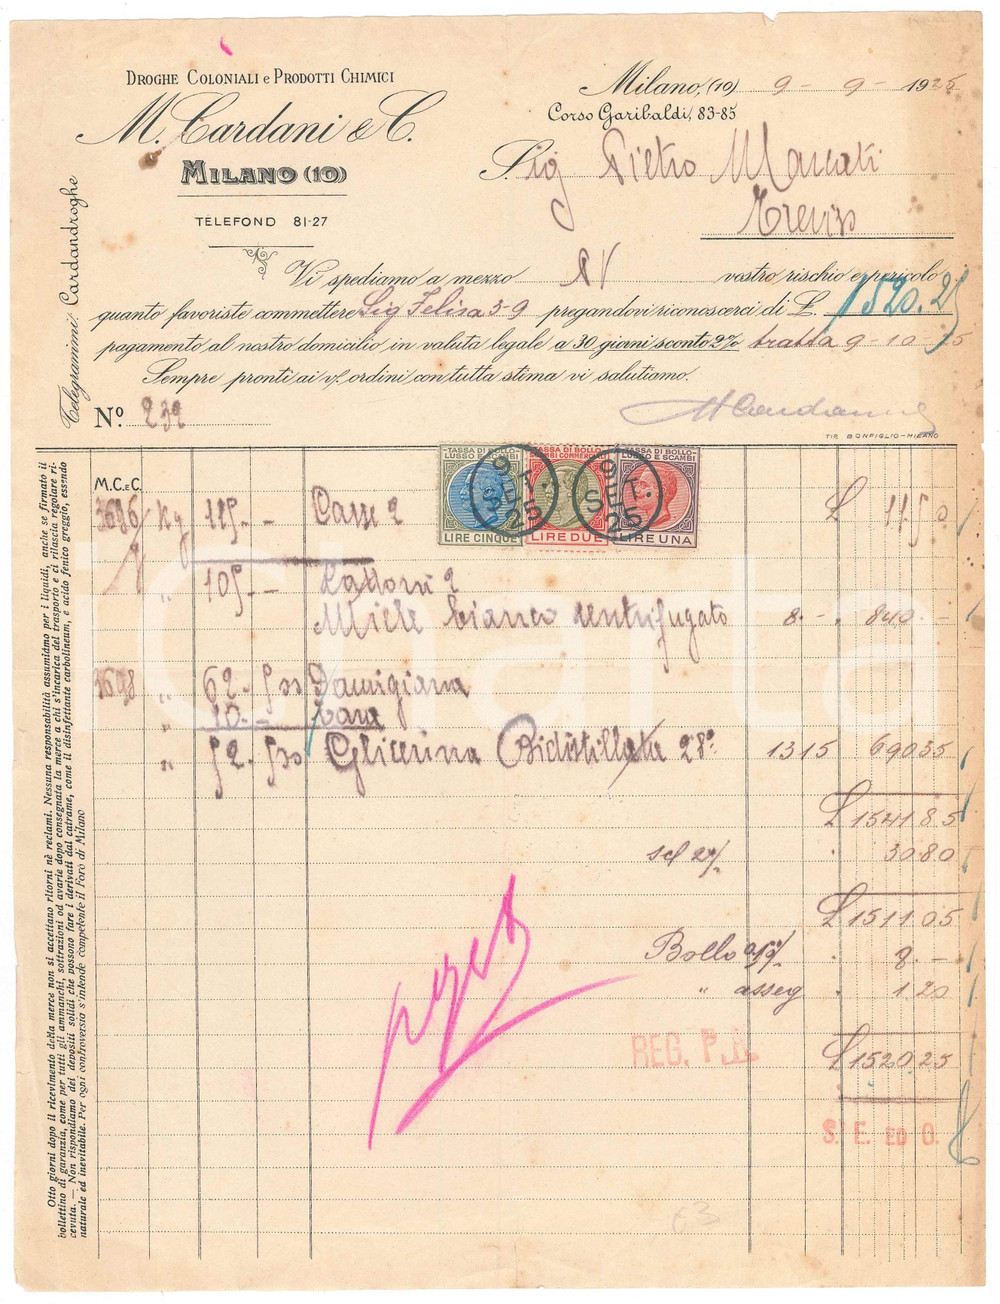 DROGHE COLONIALI e PRODOTTI CHIMICI
M. Cardani & C.
MILANO (10)
TELEFOND 81-27
Telegrammi: Cardandroghe
Milano, (10) 9 - 9 - 1925
Corso Garibaldi, 83-85
Sig Pietro Marcati
Treviso
Vi spediamo a mezzo vostro rischio e pericolo
quanto favoriste commettere Sig Felisa 3-9 pregandovi riconoscerci di L. 1520.25
pagamento al nostro domicilio in valuta legale a 30 giorni sconto 2% tratta 9-10
Sempre pronti ai vs/ ordini con tutta stima vi salutiamo.
M Cardani
N.o 232
TIP. BONFIGLIO-MILANO
M.C.eC.
TASSA DI BOLLO LUSSO E SCAMBI LIRE CINQUE
TASSA DI BOLLO SCAMBI COMMERCIALI LIRE DUE
TASSA DI BOLLO LUSSO E SCAMBI LIRE UNA
9 SET. 25
9 SET. 25
3696/ Kg 115.- Casse 2 L 11.50
" 105.- Lattoni 2
Miele bianco centrifugato 8.- 840.-
3698 " 62.500 Damigiana
" 10.- tara
" 52.500 Glicerina Bidistillata 28° 1315 690.35
L 1541.85
scf 2% 30.80
L 1511.05
Bollo 8.-
" asseg 1.20
REG. P.N.
L 1520.25
S. E. ED O.
Otto giorni dopo il ricevimento della merce non si accettano ritorni nè reclami. Nessuna responsabilità assumiamo per i liquidi, anche se firmato il
bollettino di garanzia, come per tutti gli ammanchi, sottrazioni od avarie dopo consegnata la merce a chi s'incarica del trasporto e ci rilascia regolare ri-
cevuta. — Non rispondiamo dei depositi solidi che possono fare i derivati dal catrame, come il disinfettante carbolineum, e acido fenico greggio, essendo
naturale ed inevitabile. Per ogni controversia s'intende competente il Foro di Milano
Charta